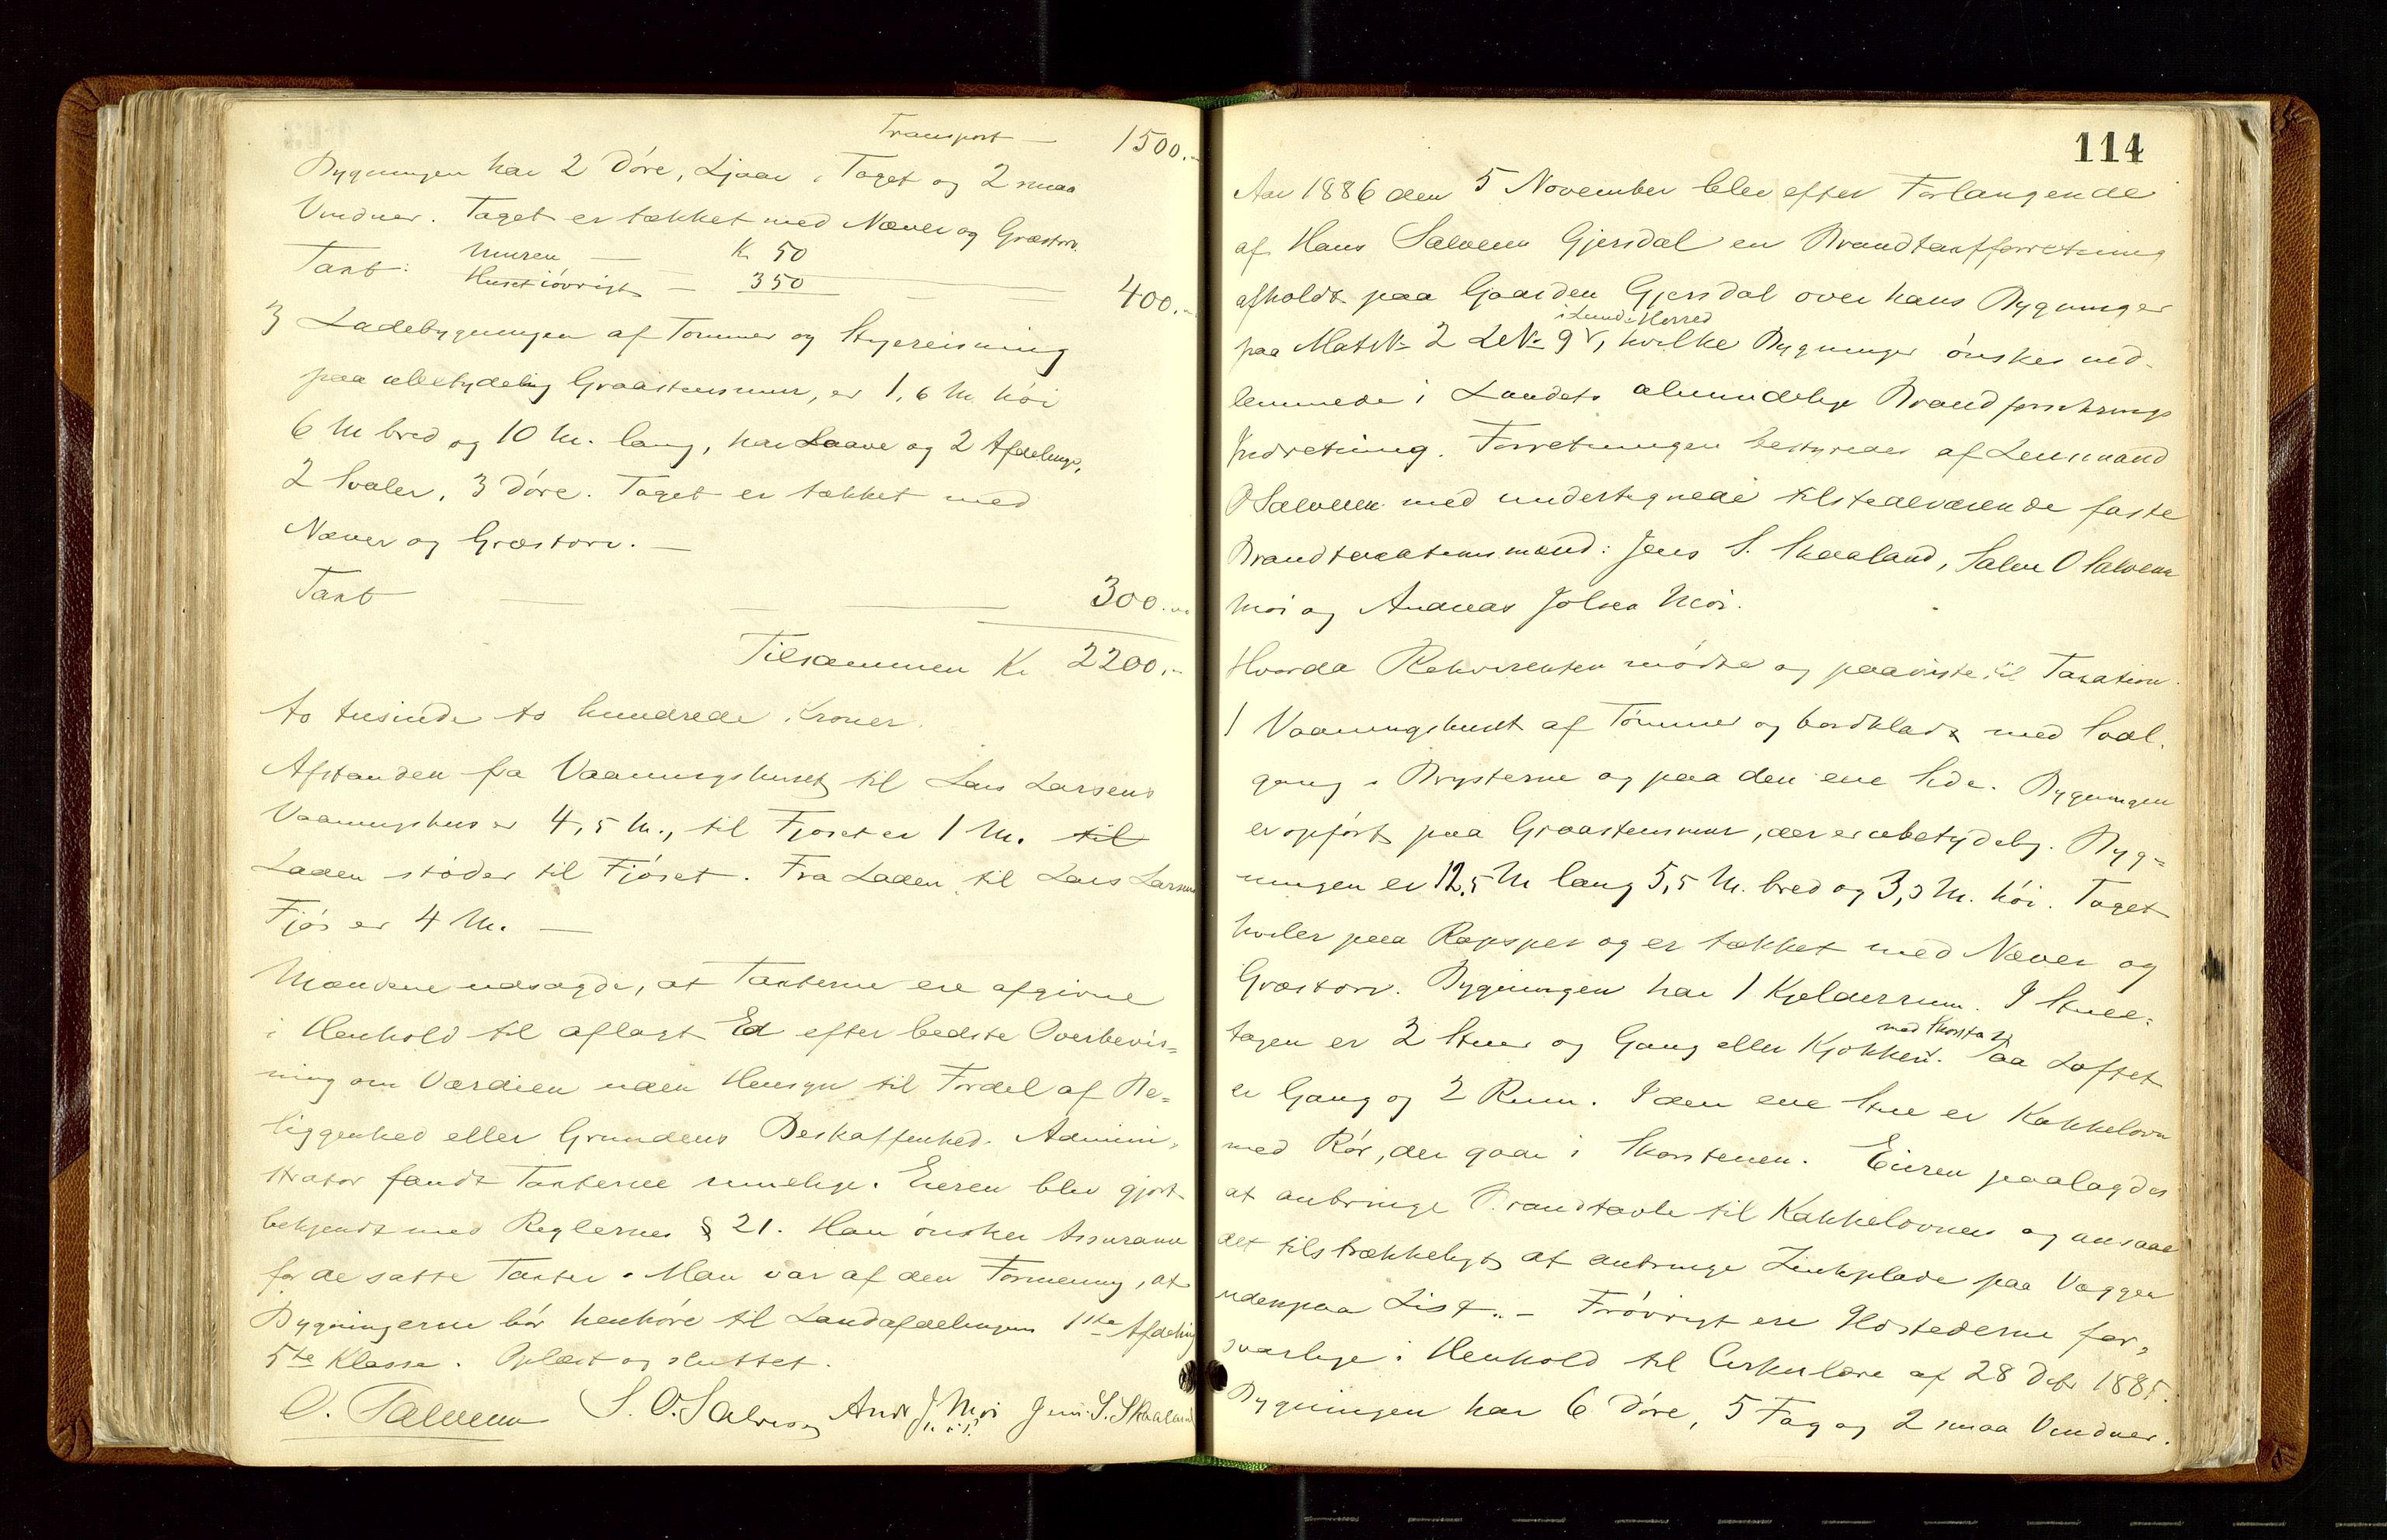 Transport — 1500.-
Bygningen har 2 Døre, Ljaar i Taget og 2 smaa
Vinduer. Taget er tækket med Næver og Græstorv.
Taxt: Muren — Kr 50
Huset iøvrigt — 350 — 400.-
3 Ladebygningen af Tømmer og Stypereisning
paa ubetydelig Graastensmur, er 1,6 M. høi
6 M bred og 10 M. lang, har Laave og 2 Afdelinge,
2 Svaler, 3 Døre. Taget er tækket med
Næver og Græstorv. —
Taxt — 300.-
Tilsammen Kr 2200.-
to tusinde to hundrede Kroner.
Afstanden fra Vaaningshuset til Lars Larsens
Vaaningshus er 4,5 M., til Fjøset er 1 M. til
Laden støder til Fjøset. Fra Laden til Lars Larsens
Fjøs er 4 M. —
Mændene udsagde, at Taxterne ere afgivne
i Henhold til aflagt Ed efter bedste Overbevis=
ning om Værdien uden Hensyn til Fordel af Be=
liggenhed eller Grundens Beskaffenhed. Admini=
strator fandt Taxterne rimelige. Eieren blev gjort
bekjendt med Reglernes § 21. Han ønsker Assurance
for de satte Taxter. Man var af den Formening, at
Bygningerne bør henhøre til Landafdelingens 1ste Afdeling
5te Klasse. Oplæst og sluttet.
O. Salvesen S. O. Salvesen Andr J. Moi Jens S. Skaaland
114
Aar 1886 den 5 November blev efter Forlangende
af Hans Salvesen Gjersdal en Brandtaxtforretning
afholdt paa Gaarden Gjersdal over hans Bygninger
i Lunds Herred
paa Mat№ 2 L№ 9, hvilke Bygninger ønskes ind-
lemmede i Landets almindelige Brandforsikrings
Indretning. Forretningen bestyredes af Lensmand
O Salvesen med undertegnede tilstedeværende faste
Brandtaxationsmænd: Jens S. Skaaland, Salve O Salvesen
Moi og Andreas Johnsen Moi.
Hvorda Rekvirenten mødte og paaviste til Taxation
1 Vaaningshuset af Tømmer og bordklædt med Sval-
gang i Brysterne og paa den ene Side. Bygningen
er opført paa Graastensmur, der er ubetydelig. Byg=
ningen er 12,5 M lang 5,5 M. bred og 3,3 M. høi. Taget
hviler paa Røpsper og er tækket med Næver og
Græstorv. Bygningen har 1 Kjelderrum. I Stuee=
med Skorsten
tagen er 2 Stuer og Gang eller Kjøkken. Paa Loftet
er Gang og 2 Rum. I den ene Stue er Kakkelovn
med Rør, der gaar i Skorstenen. Eieren paalagdes
at anbringe Brandtavle til Kakkelovnen og ansaaes
det tilstrækkeligt at anbringe Zinkplade paa Væggen
udenpaa List. - Forøvrigt ere Ildstederne for=
svarlige i Henhold til Cirkulære af 28 Debr 1885.
Bygningen har 6 Døre, 5 Fag og 2 smaa Vinduer.